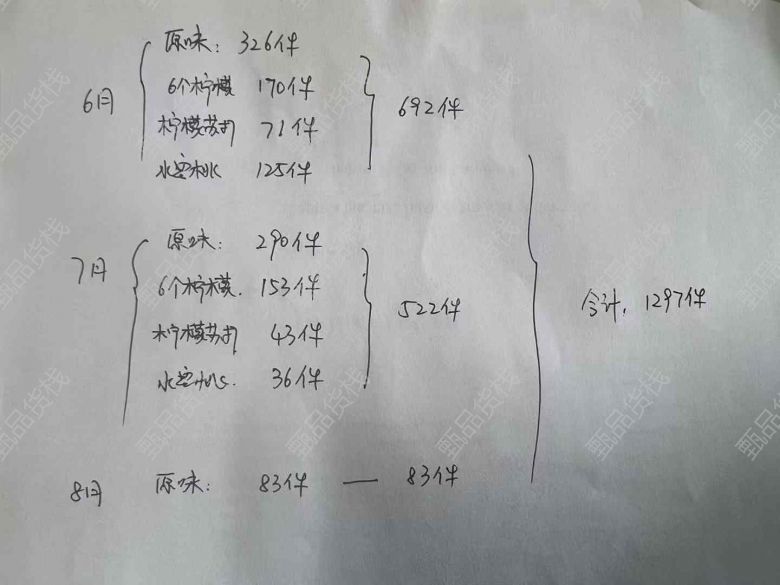 6月
原味: 326件
6个柠檬 170件
柠檬苏打 71件
水蜜桃 125件
692件
7月
原味: 290件
6个柠檬. 153件
柠檬苏打 43件
水蜜桃. 36件
522件
8月 原味: 83件 — 83件
合计. 1297件
甄品货栈